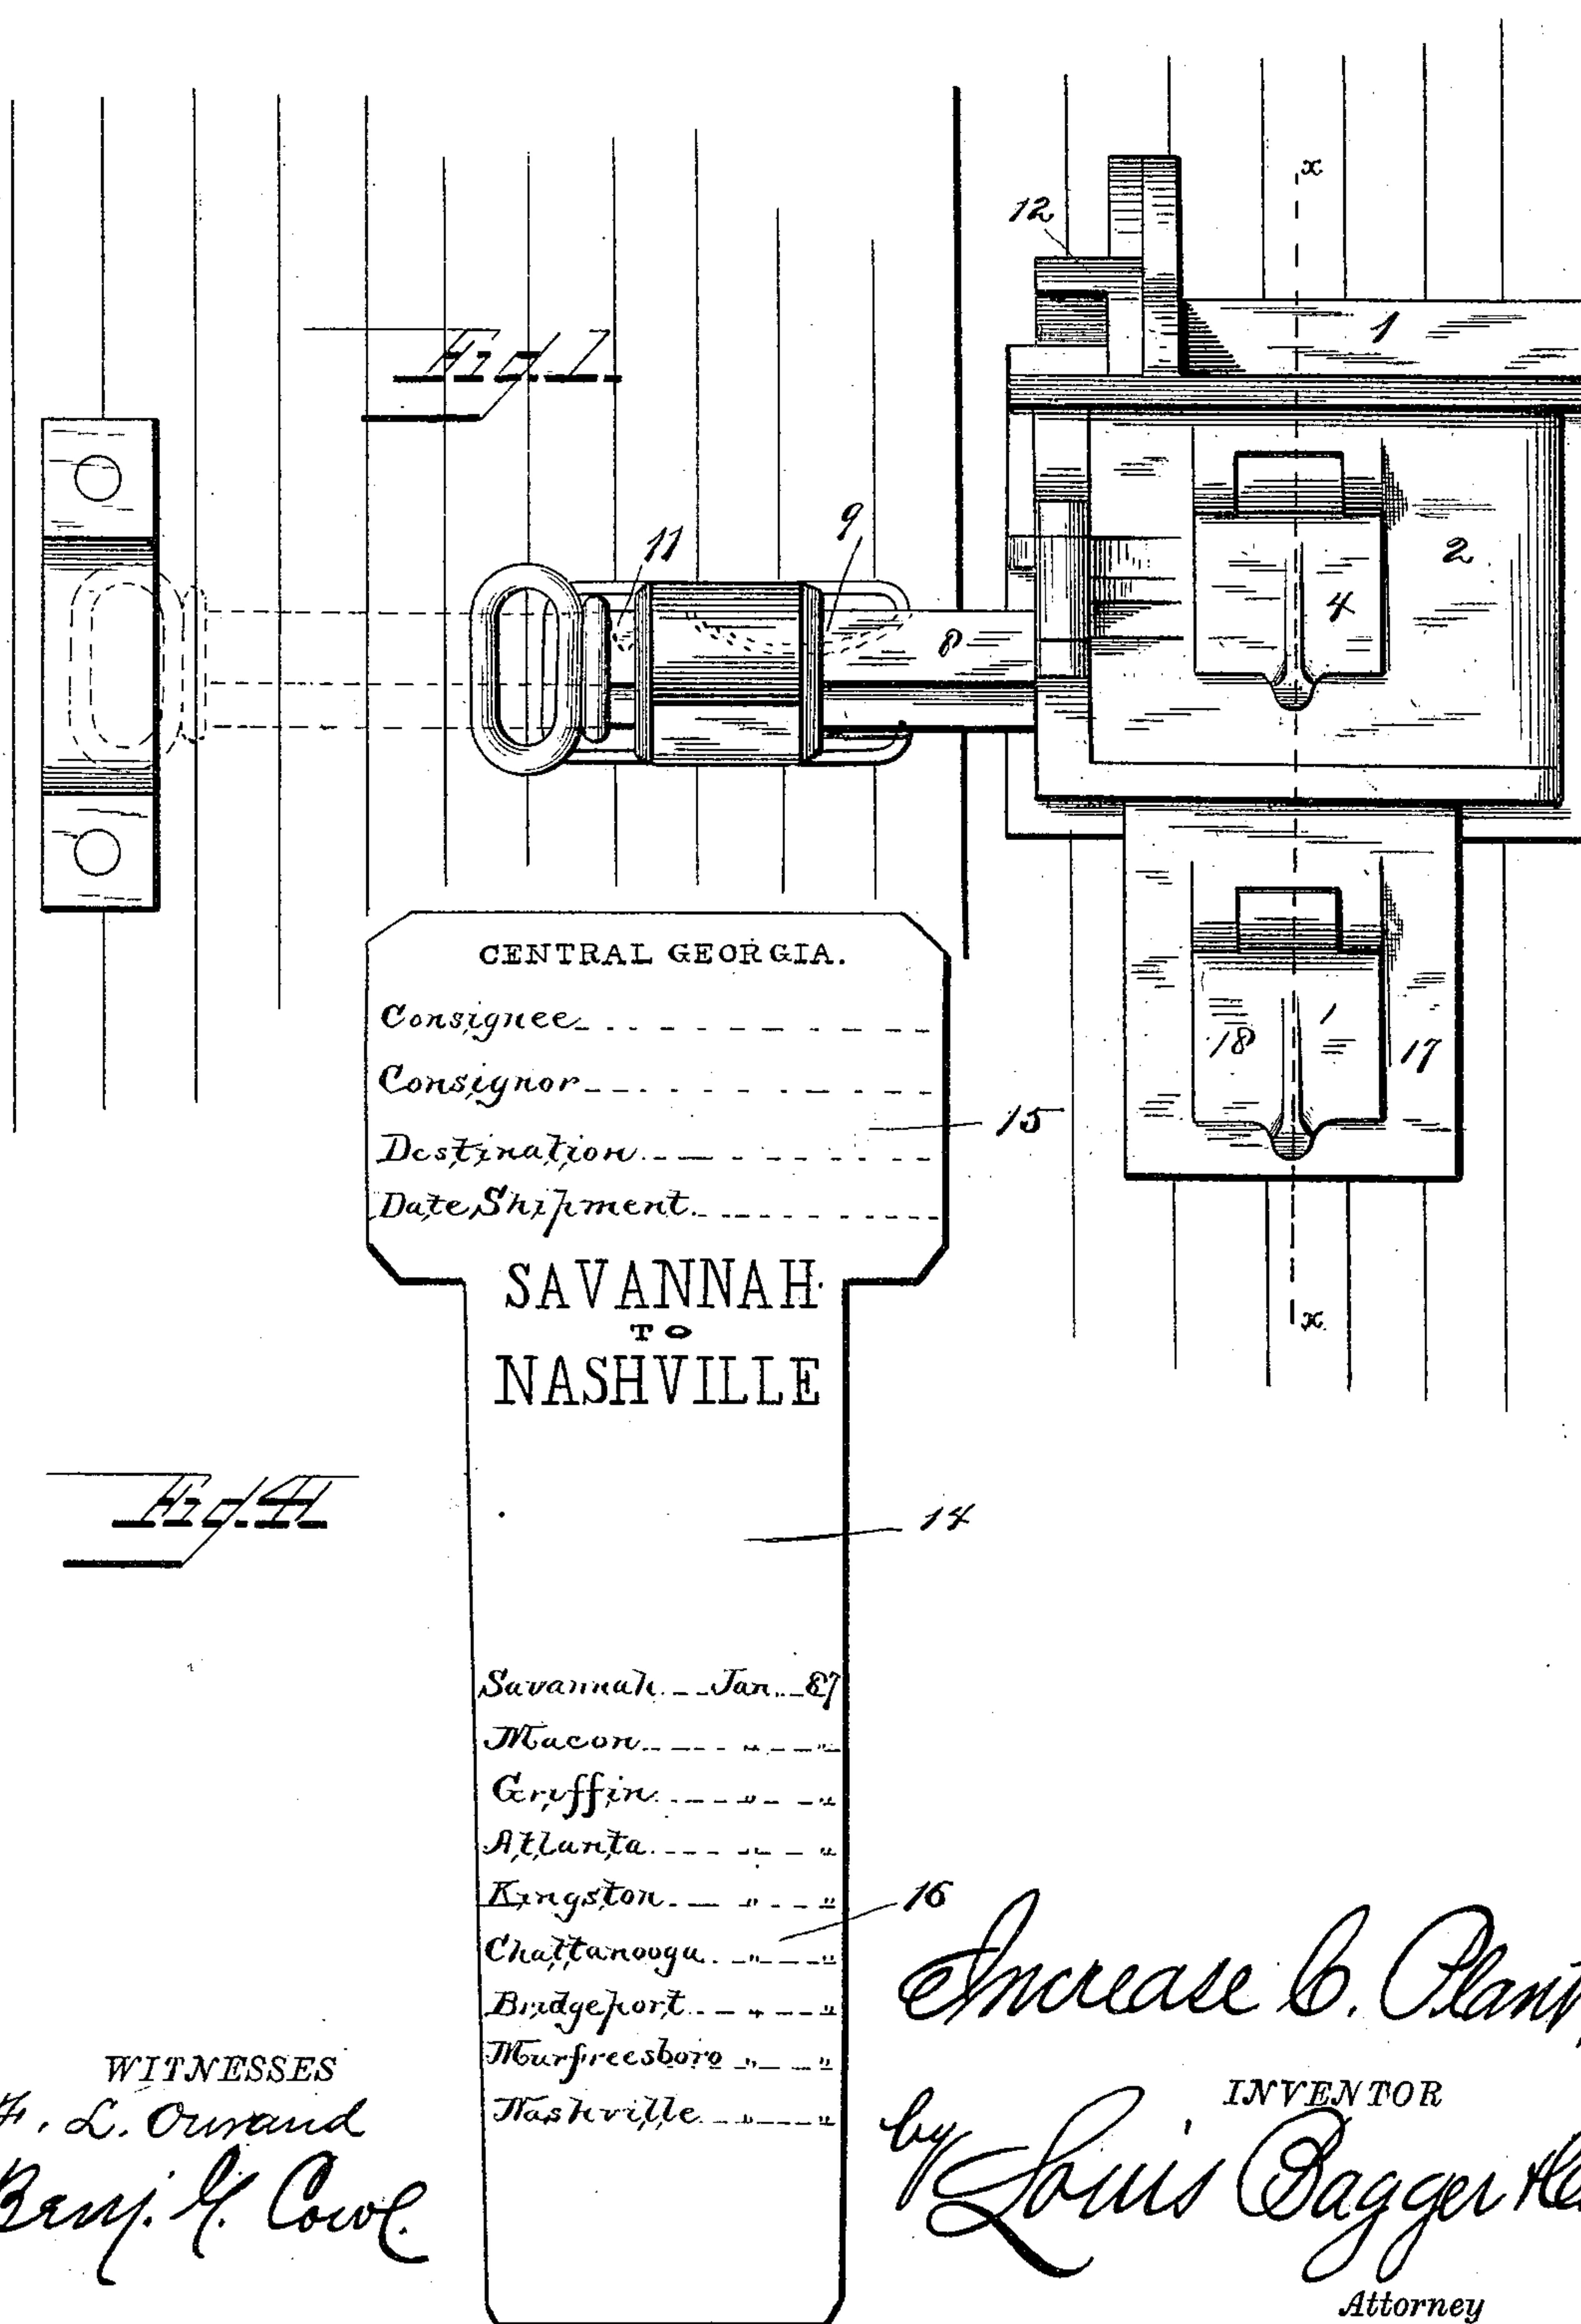 x
12
1
Fig. I.
11
9
8
2
4
CENTRAL GEORGIA.
Consignee
Consignor
Destination
Date Shipment
15
18
17
x
SAVANNAH
TO
NASHVILLE
Fig. IV.
14
Savannah Jan. 87
Macon " "
Griffin " "
Atlanta " "
Kingston " "
Chattanooga " "
16
Bridgeport " "
Murfreesboro " "
Nashville " "
Increase C. Plant,
WITNESSES
F. L. Ourand
Benj. G. Cowl.
INVENTOR
by Louis Bagger
Attorney